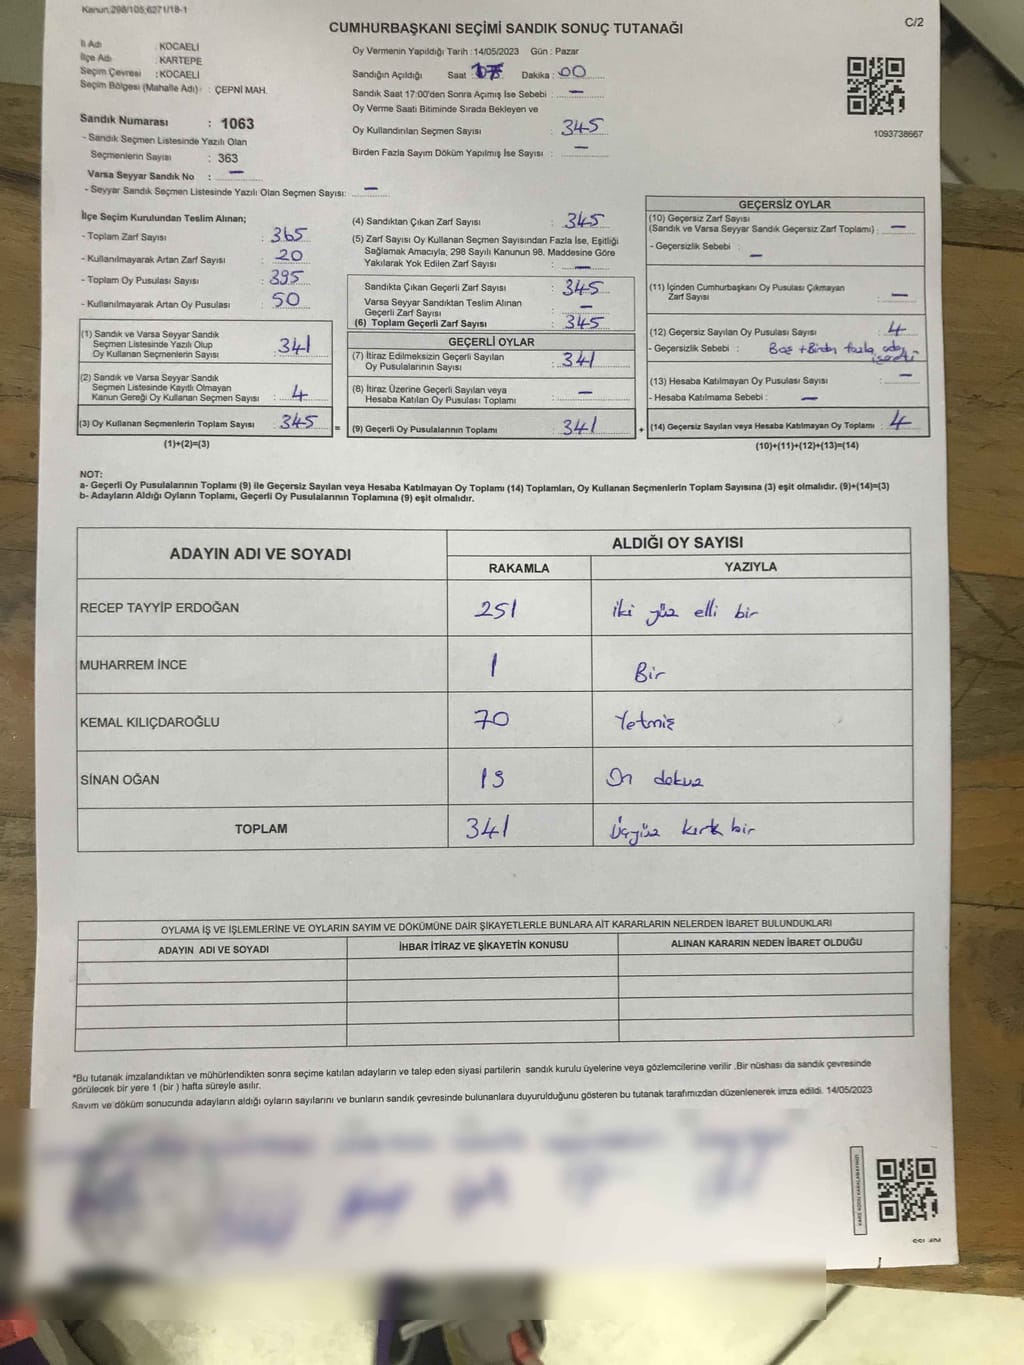 Kanun:298/105,6271/18-1
CUMHURBAŞKANI SEÇİMİ SANDIK SONUÇ TUTANAĞI
C/2
İl Adı : KOCAELİ
İlçe Adı : KARTEPE
Seçim Çevresi : KOCAELİ
Seçim Bölgesi (Mahalle Adı) : ÇEPNİ MAH.
Sandık Numarası : 1063
- Sandık Seçmen Listesinde Yazılı Olan
Seçmenlerin Sayısı : 363
Varsa Seyyar Sandık No : —
- Seyyar Sandık Seçmen Listesinde Yazılı Olan Seçmen Sayısı: —
Oy Vermenin Yapıldığı Tarih :14/05/2023 Gün : Pazar
Sandığın Açıldığı Saat : Dakika : 00
Sandık Saat 17:00'den Sonra Açımış İse Sebebi : —
Oy Verme Saati Bitiminde Sırada Bekleyen ve
Oy Kullandırılan Seçmen Sayısı : 345
Birden Fazla Sayım Döküm Yapılmış İse Sayısı : —
1093738667
İlçe Seçim Kurulundan Teslim Alınan;
- Toplam Zarf Sayısı : 365
- Kullanılmayarak Artan Zarf Sayısı : 20
- Toplam Oy Pusulası Sayısı : 395
- Kullanılmayarak Artan Oy Pusulası : 50
(1) Sandık ve Varsa Seyyar Sandık
Seçmen Listesinde Yazılı Olup
Oy Kullanan Seçmenlerin Sayısı : 341
(2) Sandık ve Varsa Seyyar Sandık
Seçmen Listesinde Kayıtlı Olmayan
Kanun Gereği Oy Kullanan Seçmen Sayısı : 4
(3) Oy Kullanan Seçmenlerin Toplam Sayısı : 345
(1)+(2)=(3)
=
(4) Sandıktan Çıkan Zarf Sayısı : 345
(5) Zarf Sayısı Oy Kullanan Seçmen Sayısından Fazla İse, Eşitliği
Sağlamak Amacıyla, 298 Sayılı Kanunun 98. Maddesine Göre
Yakılarak Yok Edilen Zarf Sayısı : —
Sandıkta Çıkan Geçerli Zarf Sayısı : 345
Varsa Seyyar Sandıktan Teslim Alınan
Geçerli Zarf Sayısı : —
(6) Toplam Geçerli Zarf Sayısı : 345
GEÇERLİ OYLAR
(7) İtiraz Edilmeksizin Geçerli Sayılan
Oy Pusulalarının Sayısı : 341
(8) İtiraz Üzerine Geçerli Sayılan veya
Hesaba Katılan Oy Pusulası Toplamı : —
(9) Geçerli Oy Pusulalarının Toplamı : 341
+
GEÇERSİZ OYLAR
(10) Geçersiz Zarf Sayısı
(Sandık ve Varsa Seyyar Sandık Geçersiz Zarf Toplamı) : —
- Geçersizlik Sebebi : —
(11) İçinden Cumhurbaşkanı Oy Pusulası Çıkmayan
Zarf Sayısı : —
(12) Geçersiz Sayılan Oy Pusulası Sayısı : 4
- Geçersizlik Sebebi : Boş + Birden fazla
(13) Hesaba Katılmayan Oy Pusulası Sayısı : —
- Hesaba Katılmama Sebebi : —
(14) Geçersiz Sayılan veya Hesaba Katılmayan Oy Toplamı : 4
(10)+(11)+(12)+(13)=(14)
NOT:
a- Geçerli Oy Pusulalarının Toplamı (9) ile Geçersiz Sayılan veya Hesaba Katılmayan Oy Toplamı (14) Toplamları, Oy Kullanan Seçmenlerin Toplam Sayısına (3) eşit olmalıdır. (9)+(14)=(3)
b- Adayların Aldığı Oyların Toplamı, Geçerli Oy Pusulalarının Toplamına (9) eşit olmalıdır.
ADAYIN ADI VE SOYADI
ALDIĞI OY SAYISI
RAKAMLA YAZIYLA
RECEP TAYYİP ERDOĞAN 251 iki yüz elli bir
MUHARREM İNCE 1 Bir
KEMAL KILIÇDAROĞLU 70 Yetmiş
SİNAN OĞAN 19 On dokuz
TOPLAM 341 Üçyüz kırk bir
OYLAMA İŞ VE İŞLEMLERİNE VE OYLARIN SAYIM VE DÖKÜMÜNE DAİR ŞİKAYETLERLE BUNLARA AİT KARARLARIN NELERDEN İBARET BULUNDUKLARI
ADAYIN ADI VE SOYADI İHBAR İTİRAZ VE ŞİKAYETİN KONUSU ALINAN KARARIN NEDEN İBARET OLDUĞU
*Bu tutanak imzalandıktan ve mühürlendikten sonra seçime katılan adayların ve talep eden siyasi partilerin sandık kurulu üyelerine veya gözlemcilerine verilir .Bir nüshası da sandık çevresinde
görülecek bir yere 1 (bir ) hafta süreyle asılır.
Sayım ve döküm sonucunda adayların aldığı oyların sayılarını ve bunların sandık çevresinde bulunanlara duyurulduğunu gösteren bu tutanak tarafımızdan düzenlenerek imza edildi. 14/05/2023